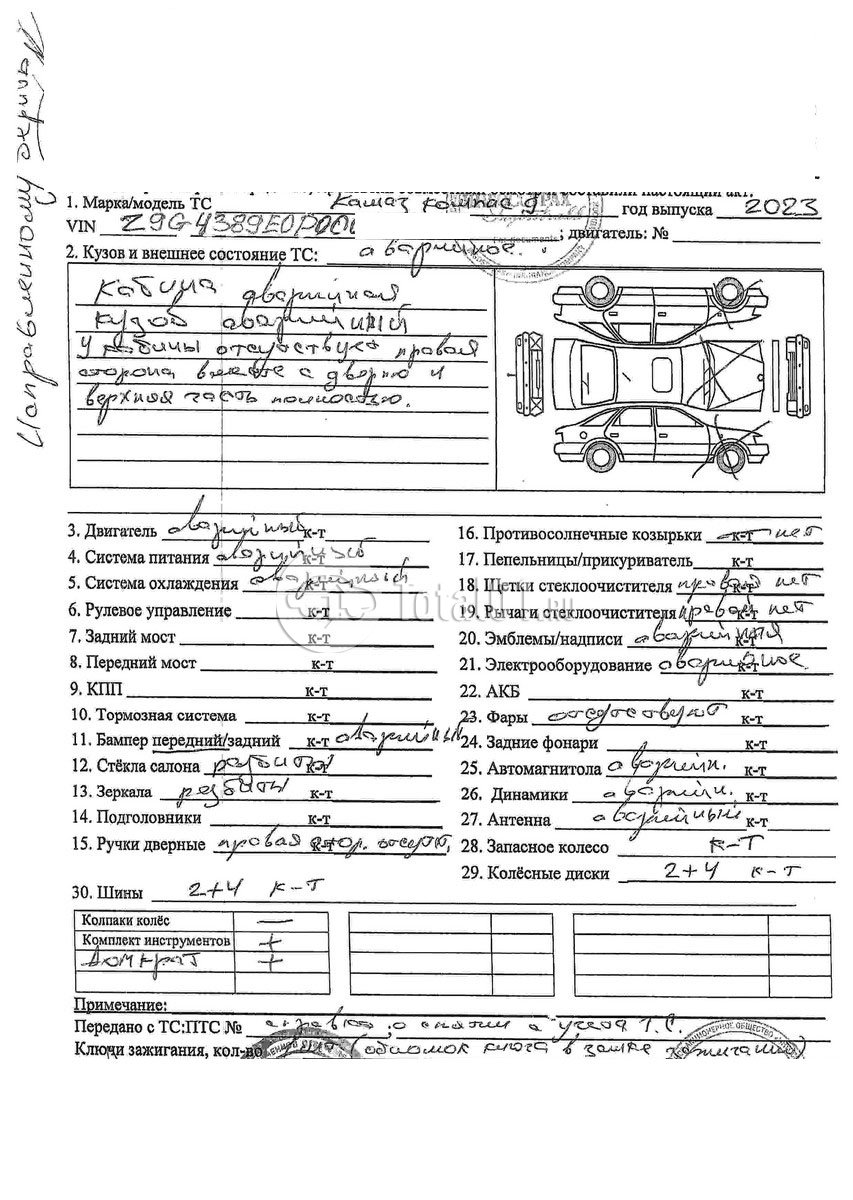 Направленному
составили настоящий акт.
1. Марка/модель ТС Камаз компас 9 год выпуска 2023
VIN Z9G4389E0P00 ; двигатель: №
2. Кузов и внешнее состояние ТС: аварийное.
Кабина аварийная
кузов аварийный
У кабины отсутствует правая
сторона вместе с дверью и
верхняя часть полностью.
3. Двигатель аварийный к-т
4. Система питания аварийный к-т
5. Система охлаждения аварийный к-т
6. Рулевое управление к-т
7. Задний мост к-т
8. Передний мост к-т
9. КПП к-т
10. Тормозная система к-т
11. Бампер передний/задний к-т аварийный
12. Стёкла салона разбиты к-т
13. Зеркала разбиты к-т
14. Подголовники к-т
15. Ручки дверные правая стор. отсут. к-т
16. Противосолнечные козырьки к-т нет
17. Пепельницы/прикуриватель к-т
18. Щетки стеклоочистителя правой нет к-т
19. Рычаги стеклоочистителя правой нет к-т
20. Эмблемы/надписи аварийная к-т
21. Электрооборудование аварийное к-т
22. АКБ к-т
23. Фары отсутствуют к-т
24. Задние фонари к-т
25. Автомагнитола аварийн. к-т
26. Динамики аварийн. к-т
27. Антенна аварийный к-т
28. Запасное колесо к-т
29. Колёсные диски 2+4 к-т
30. Шины 2+4 к-т
Колпаки колёс —
Комплект инструментов +
Домкрат +
Примечание:
Передано с ТС:ПТС № справка о снятии с учета Т.С.
Ключи зажигания, кол-во (обломок ключа в замке зажигания)
Total01.ru